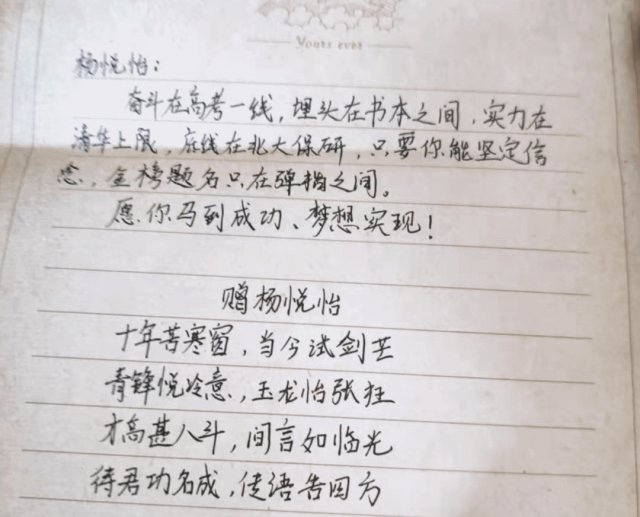 Yours ever
杨悦怡：
奋斗在高考一线，埋头在书本之间，实力在
清华上限，底线在北大保研，只要你能坚定信
念，金榜题名只在弹指之间。
愿你马到成功、梦想实现！
赠杨悦怡
十年苦寒窗，当今试剑芒
青锋悦冷意，玉龙怡张狂
才高甚八斗，间言如临光
待君功名成，传语告四方